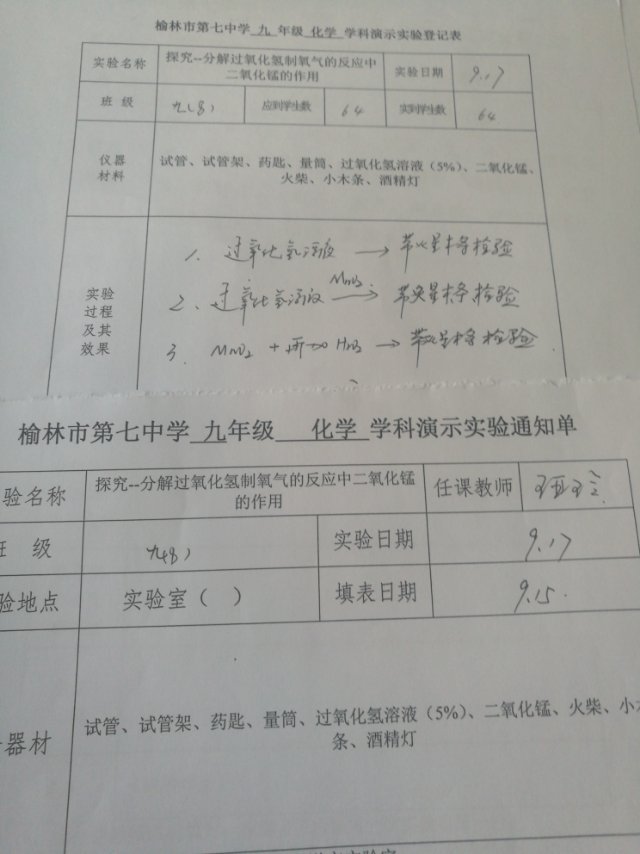 榆林市第七中学 九 年级 化学 学科演示实验登记表
实验名称 探究--分解过氧化氢制氧气的反应中二氧化锰的作用 实验日期 9.17
班 级 九(8) 应到学生数 64 实到学生数 64
仪器材料 试管、试管架、药匙、量筒、过氧化氢溶液（5%）、二氧化锰、
火柴、小木条、酒精灯
实验过程及其效果
1. 过氧化氢溶液 → 带火星木条检验
2. 过氧化氢溶液 MnO2→ 带火星木条检验
3. MnO2 + 再加 → 带火星木条检验
榆林市第七中学 九年级 化学 学科演示实验通知单
验名称 探究--分解过氧化氢制氧气的反应中二氧化锰的作用 任课教师
级 九(8) 实验日期 9.17
验地点 实验室（ ） 填表日期 9.15.
器材 试管、试管架、药匙、量筒、过氧化氢溶液（5%）、二氧化锰、火柴、小木
条、酒精灯